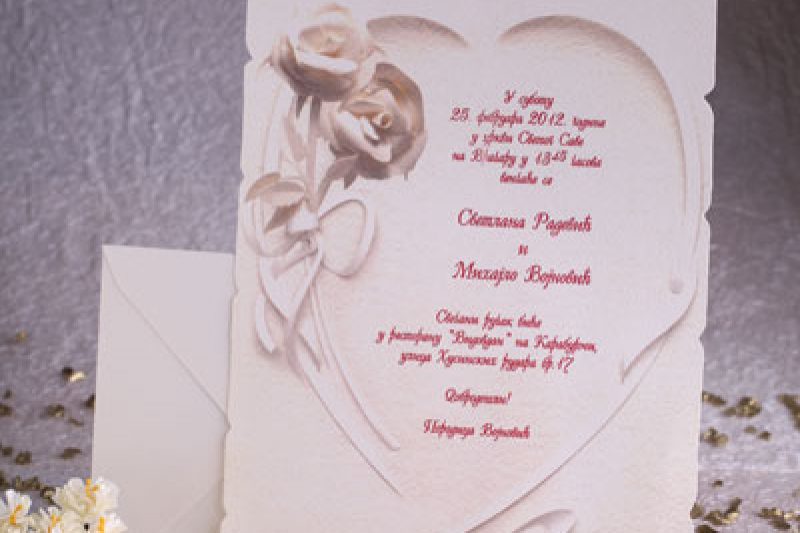 У суботу
25. фебруара 2012. године
у цркви Светог Саве
на Врачару у 13⁴⁵ часова
венчаће се
Светлана Радевић
и
Михајло Војновић
Свечани ручак биће
у ресторану "Видовдан" на Карабурми,
улица Хусинских рудара бр.17
Добродошли!
Породица Војновић